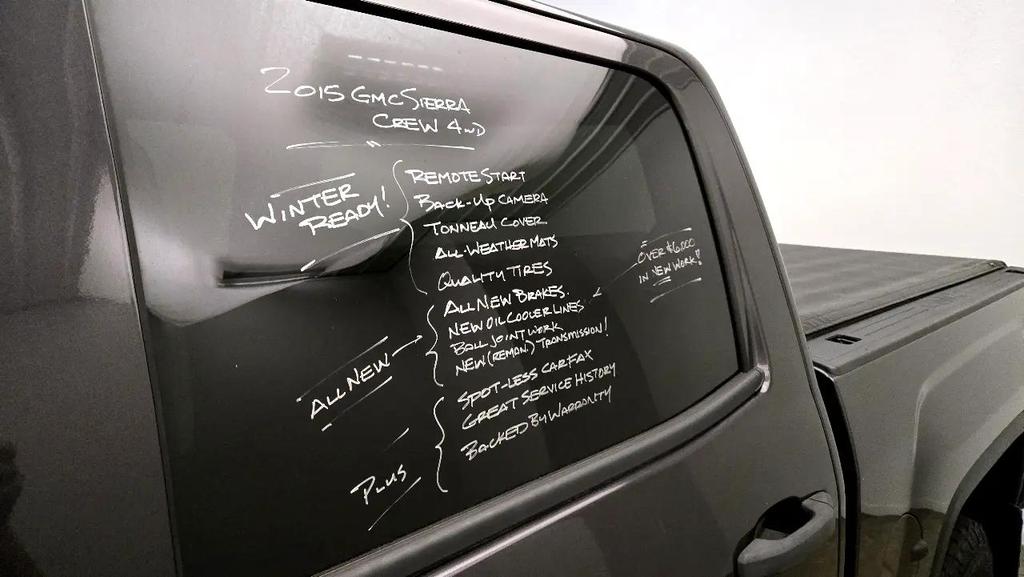 2015 GMC SIERRA
CREW 4WD
WINTER
READY!
REMOTE START
BACK-UP CAMERA
TONNEAU COVER
ALL-WEATHER MATS
QUALITY TIRES
ALL NEW
ALL NEW BRAKES.
NEW OIL COOLER LINES
BALL JOINT WORK
NEW (REMAN.) TRANSMISSION!
OVER $6,000
IN NEW WORK!!
PLUS
SPOT-LESS CARFAX
GREAT SERVICE HISTORY
BACKED BY WARRANTY